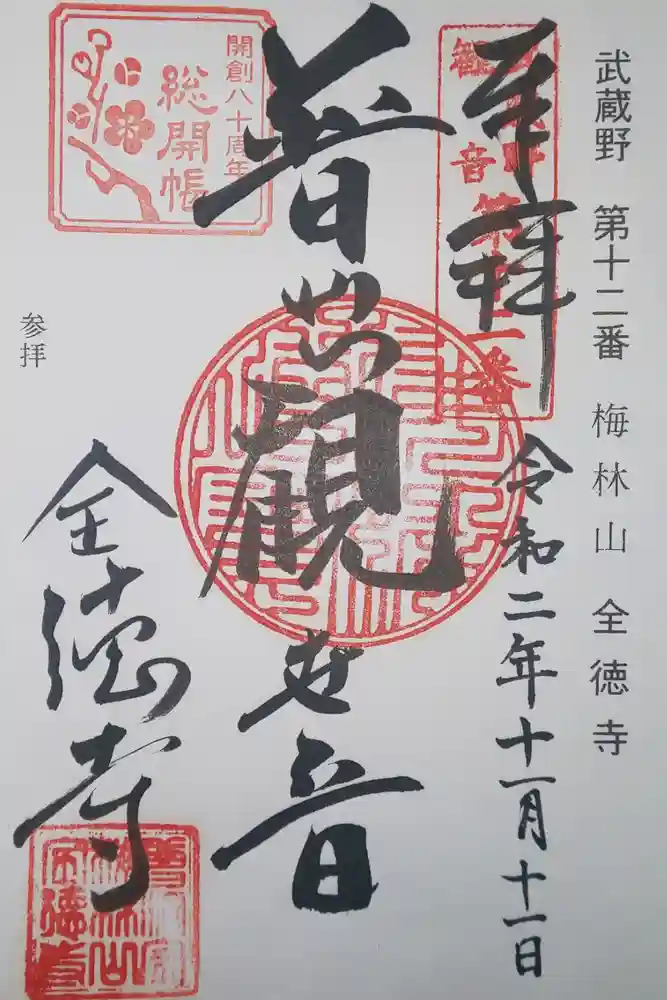 武蔵野 第十二番 梅林山 全徳寺
奉拝
令和二年十一月十一日
観音
第十二番
普
観世音
開創八十周年
総開帳
参拝
全徳寺